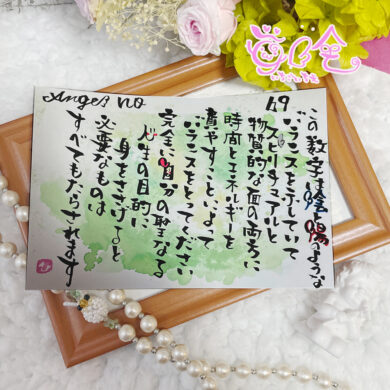 Angel no
69
この数字は陰と陽のような
バランスを示していて
スピリチュアルと
物質的な面の両方に
時間とエネルギーを
費やすことによって
バランスをとってください
完全に自分の聖なる
人生の目的に
身をささげると
必要なものは
すべてもたらされます